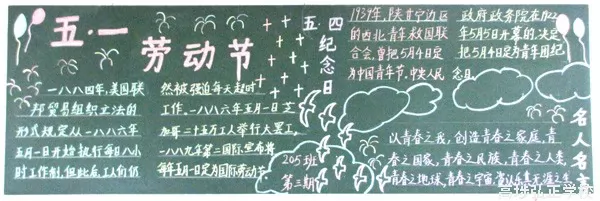 五·一
劳动节
一八八四年,美国联
邦贸易组织立法的
形式规定从一八八六年
五月一日开始执行每日八小
时工作制,但此后,工人们仍
然被强迫每天超时
工作。一八八六年五月一日芝
加哥二十五万工人举行大罢工。
一八八九年第二国际宣布将
每年五月一日定为国际劳动节
五四
纪念日
1939年,陕甘宁边区
的西北青年救国联
合会,曾把5月4日定
为中国青年节,中央人民
政府政务院在1922
年5月5日开幕的,决定
把5月4定为青年团纪
念日。
205班
第三期
名人名言
以青春之我,创造青春之家庭,青
春之国家,青春之民族,青春之人类,
青春之地球,青春之宇宙
弘正学校